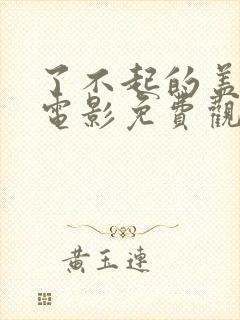 了不起的盖
電影免費觀
黄玉連